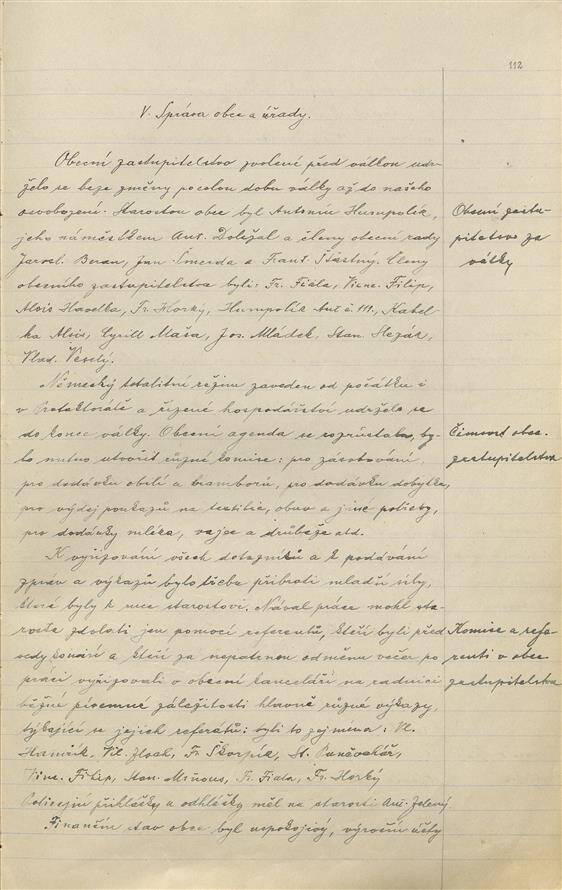 112
V. Správa obce a úřady.
Obecní zastupitelstvo zvolené před válkou udr-
želo se beze změny po celou dobu války až do našeho
osvobození. Starostou obce byl Antonín Humpolík,
jeho náměstkem Ant. Doležal a členy obecní rady
Jarosl. Beran, Jan Šmerda a Frant. Šťastný. Členy
obecního zastupitelstva byli: Fr. Fiala, Vinc. Filip,
Alois Havelka, Fr. Horký, Humpolík Ant. č. 111., Kabel-
ka Alois, Cyrill Máša, Jos. Mládek, Stan. Slezák,
Vlad. Veselý.
Obecní zastu-
pitelstvo za
války
Německý totalitní režim zaveden od počátku i
v Protektorátě a řízené hospodářství udrželo se
do konce války. Obecní agenda se rozrůstala, by-
lo nutno utvořit různé komise: pro zásobování,
pro dodávku obilí a bramborů, pro dodávku dobytka,
pro výdej poukazů na textilie, obuv a jiné potřeby,
pro dodávky mléka, vajec a drůbeže atd.
Činnost obec.
zastupitelstva
K vyřizování všech dotazníků a k podávání
zpráv a výkazů bylo třeba přibrati mladší síly,
které byly k ruce starostovi. Nával práce mohl sta-
rosta zdolati jen pomocí referentů, kteří byli před
sedy komisí a kteří za nepatrnou odměnu večer po
práci vyřizovali v obecní kanceláři na radnici
běžné písemné záležitosti hlavně různé výkazy,
týkající se jejich referátů: byli to zejména: Vl.
Hamřík, Vil. Zloch, Fr. Škorpík, St. Punčochář,
Vinc. Filip, Stan. Mrňous, Fr. Fiala, Fr. Horký
Komise a refe
renti v obec
zastupitelstva
Policejní přihlášky a odhlášky měl na starosti Ant. Zelený.
Finanční stav obce byl uspokojivý, výroční účty